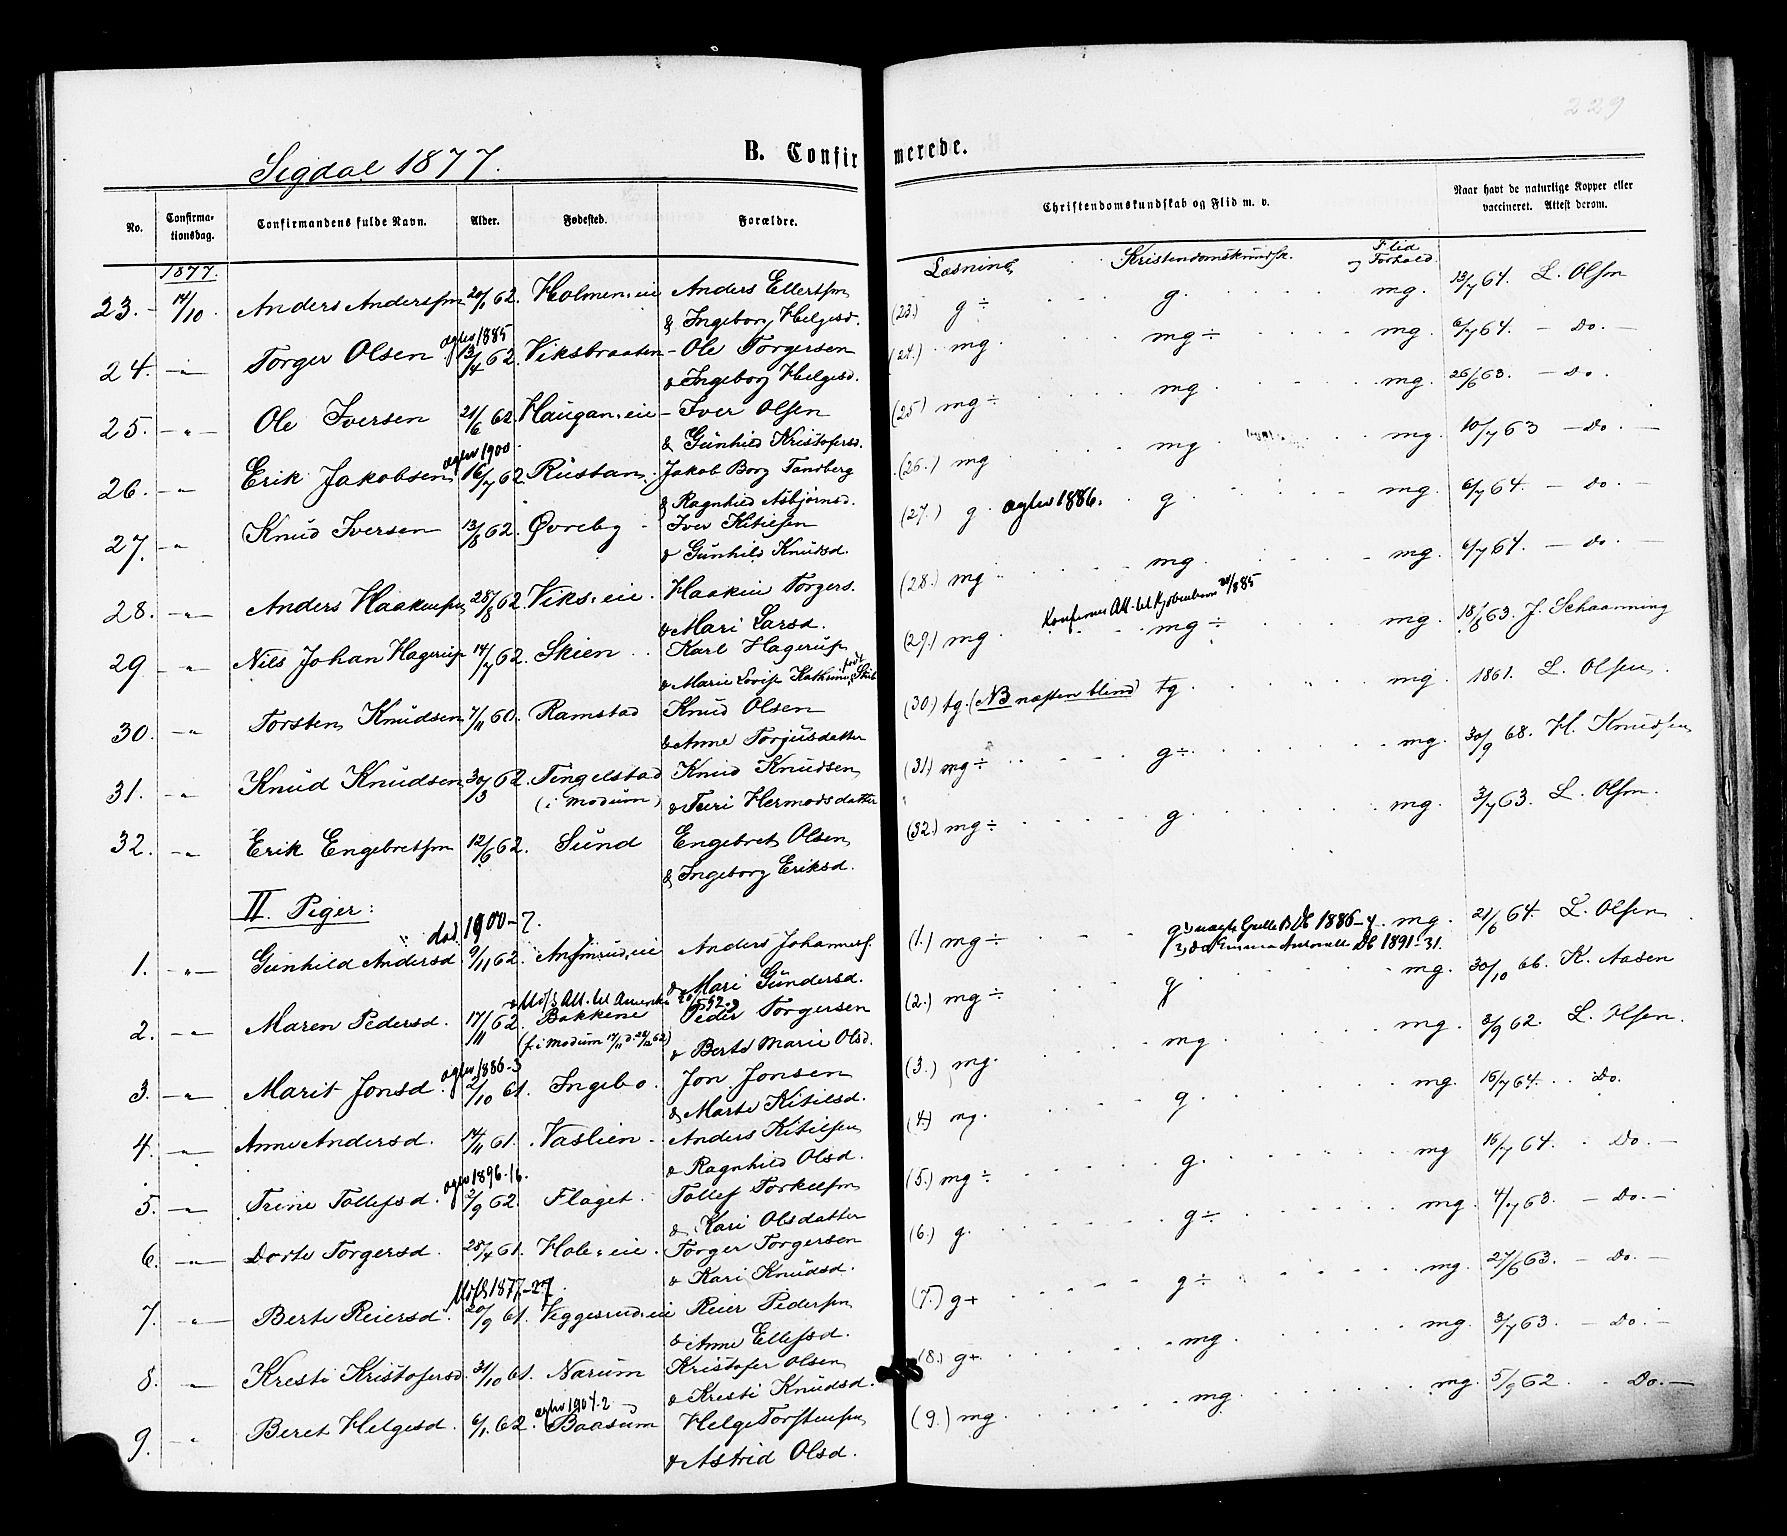 229
Sigdal 1877.
B. Confirmerede.
No. Confirmationsdag. Confirmandens fulde Navn. Alder. Fødested. Forældre. Christendomskundskab og Flid m. v. Naar havt de naturlige Kopper eller vaccineret. Attest derom.
1877. Læsning Kristendomskundsk. Flid og Forhold
23. 14/10 Anders Anderssen 20/1 62. Holmen-eie Anders Ellertsen (23.) g ÷ g. mg. 13/7 64. L. Olsen
& Ingeborg Helgesd.
aglev 1885
24. -"- Torger Olsen 13/4 62. Viksbraaten - Ole Torgersen (24.) mg mg ÷ mg. 6/7 64. - Do. -
& Ingeborg Helgesd.
25. -"- Ole Iversen 21/6 62. Haugan-eie - Iver Olsen (25) mg ÷ mg mg. 26/6 63. - Do.
& Gunhild Kristofersd.
aglev 1900
26. -"- Erik Jakobsen 16/7 62. Rustan. Jakob Borg Tandberg (26.) mg mg mg. 10/7 63 - Do. -
& Ragnhild Asbjørnsd.
27. -"- Knud Iversen 13/8 62. Øvreby - Iver Kitilsen (27.) g. aglev 1886. g mg. 6/7 64. - Do. -
& Gunhild Knudsd.
28. -"- Anders Haakensen 28/8 62. Viks-eie. Haaken Torgers. (28.) mg mg mg. 6/7 64. - Do. -
& Mari Larsd.
29 -"- Nils Johan Hagerup 14/7 62. Skien Karl Hagerup (29.) mg. mg ÷ mg. 18/8 63. J. Schaanning
& Marie Lovise Kathrine
30. -"- Torsten Knudsen 7/11 60. Ramstad Knud Olsen (30.) tg. (NB næsten blind) tg. mg 1861. L. Olsen.
& Anne Torjusdatter
31. -"- Knud Knudsen 30/3 62. Tingelstad Knud Knudsen (31.) mg ÷ g ÷ mg. 30/9 68. H. Knudsen
(i Modum) & Turi Hermodsdatter
32. -"- Erik Engebretsen 12/6 62. Sund Engebret Olsen (32.) mg ÷ g mg. 3/7 63. L. Olsen.
& Ingeborg Eriksd.
II. Piger:
død 1900-7.
1. -"- Gunhild Andersd 9/11 62. Anders Johanness. (1.) mg ÷ g mg. 21/6 64. L. Olsen
& Mari Gundersd.
2. -"- Maren Pedersd. 17/11 62. Bakkene Peder Torgersen (2.) mg ÷ g mg. 30/10 66. K. Aasen
& Berte Marie Olsd.
aglev 1886-3
3. -"- Marit Jonsd. 2/10 61. Ingebo. Jon Jonsen (3.) mg. mg mg. 8/9 62. L. Olsen.
& Marte Kitilsd.
4. -"- Anne Andersd. 14/11 61. Vaslien - Anders Kitilsen (4.) mg. g mg. 15/7 64. Do.
& Ragnhild Olsd.
aglev 1896-16.
5. -"- Trine Tollefsd. 2/9 62. Flaget. Tollef Torkelsen (5.) mg ÷ g. mg 15/7 64. Do. -
& Kari Olsdatter
6. -"- Dorte Torgersd. 28/4 61. Hole-eie. Torger Torgersen (6.) g. g ÷ mg. 4/7 63. - Do. -
& Kari Knudsd.
7. -"- Berte Reiersd. 20/9 61. Veggesrud-eie Reier Pedersen (7.) g + g ÷ mg. 27/6 63. - Do. -
& Anne Ellefsd.
8. -"- Kresti Kristofersd. 31/10 61. Narum Kristofer Olsen (8.) g +. mg. mg. 3/7 63. - Do. -
& Kresti Knudsd.
aglev 1904-2
9. -"- Beret Helgesd. 6/1 62. Baasum Helge Torstensen (9.) mg mg. mg. 5/9 62. Do. -
& Astrid Olsd.